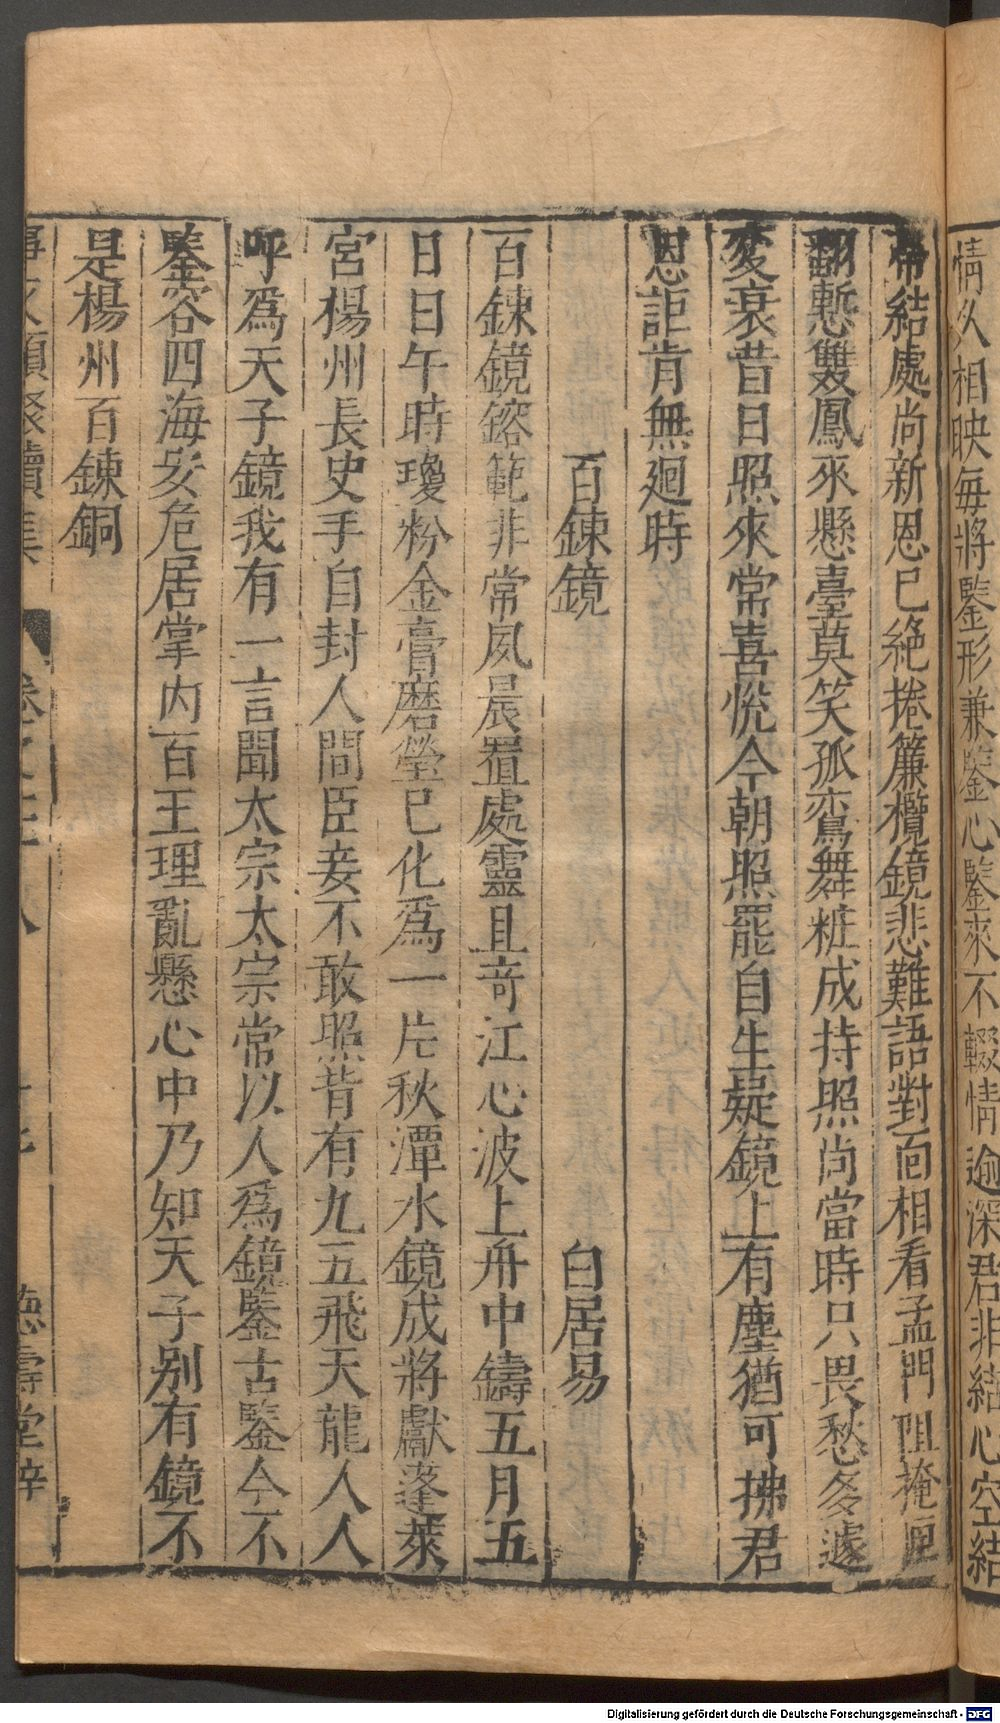 情人相映每將鑒形兼鑒心鑒來不輟情逾深君非結心空結
帶結處尚新恩已絶捲簾攬鏡悲難語對面相看孟門阻掩匣
翻慙雙鳳來懸臺莫笑孤鸞舞粧成持照尚當時只畏愁多遽
變衰昔日照來常喜悅今朝照罷自生疑鏡上有塵猶可拂君
恩詎肯無廻時
百鍊鏡 白居易
百鍊鏡鎔範非常夙晨置處靈且竒江心波上舟中鑄五月五
日日午時瓊粉金膏磨瑩已化爲一片秋潭水鏡成將獻蓬萊
宮楊州長史手自封人間臣妾不敢照背有九五飛天龍人人
呼爲天子鏡我有一言聞太宗太宗常以人爲鏡鑒古鑒今不
鑒容四海安危居掌内百王理亂懸心中乃知天子别有鏡不
是楊州百鍊銅
事文類聚續集 卷之 德壽堂梓
Digitalisierung gefördert durch die Deutsche Forschungsgemeinschaft - DFG